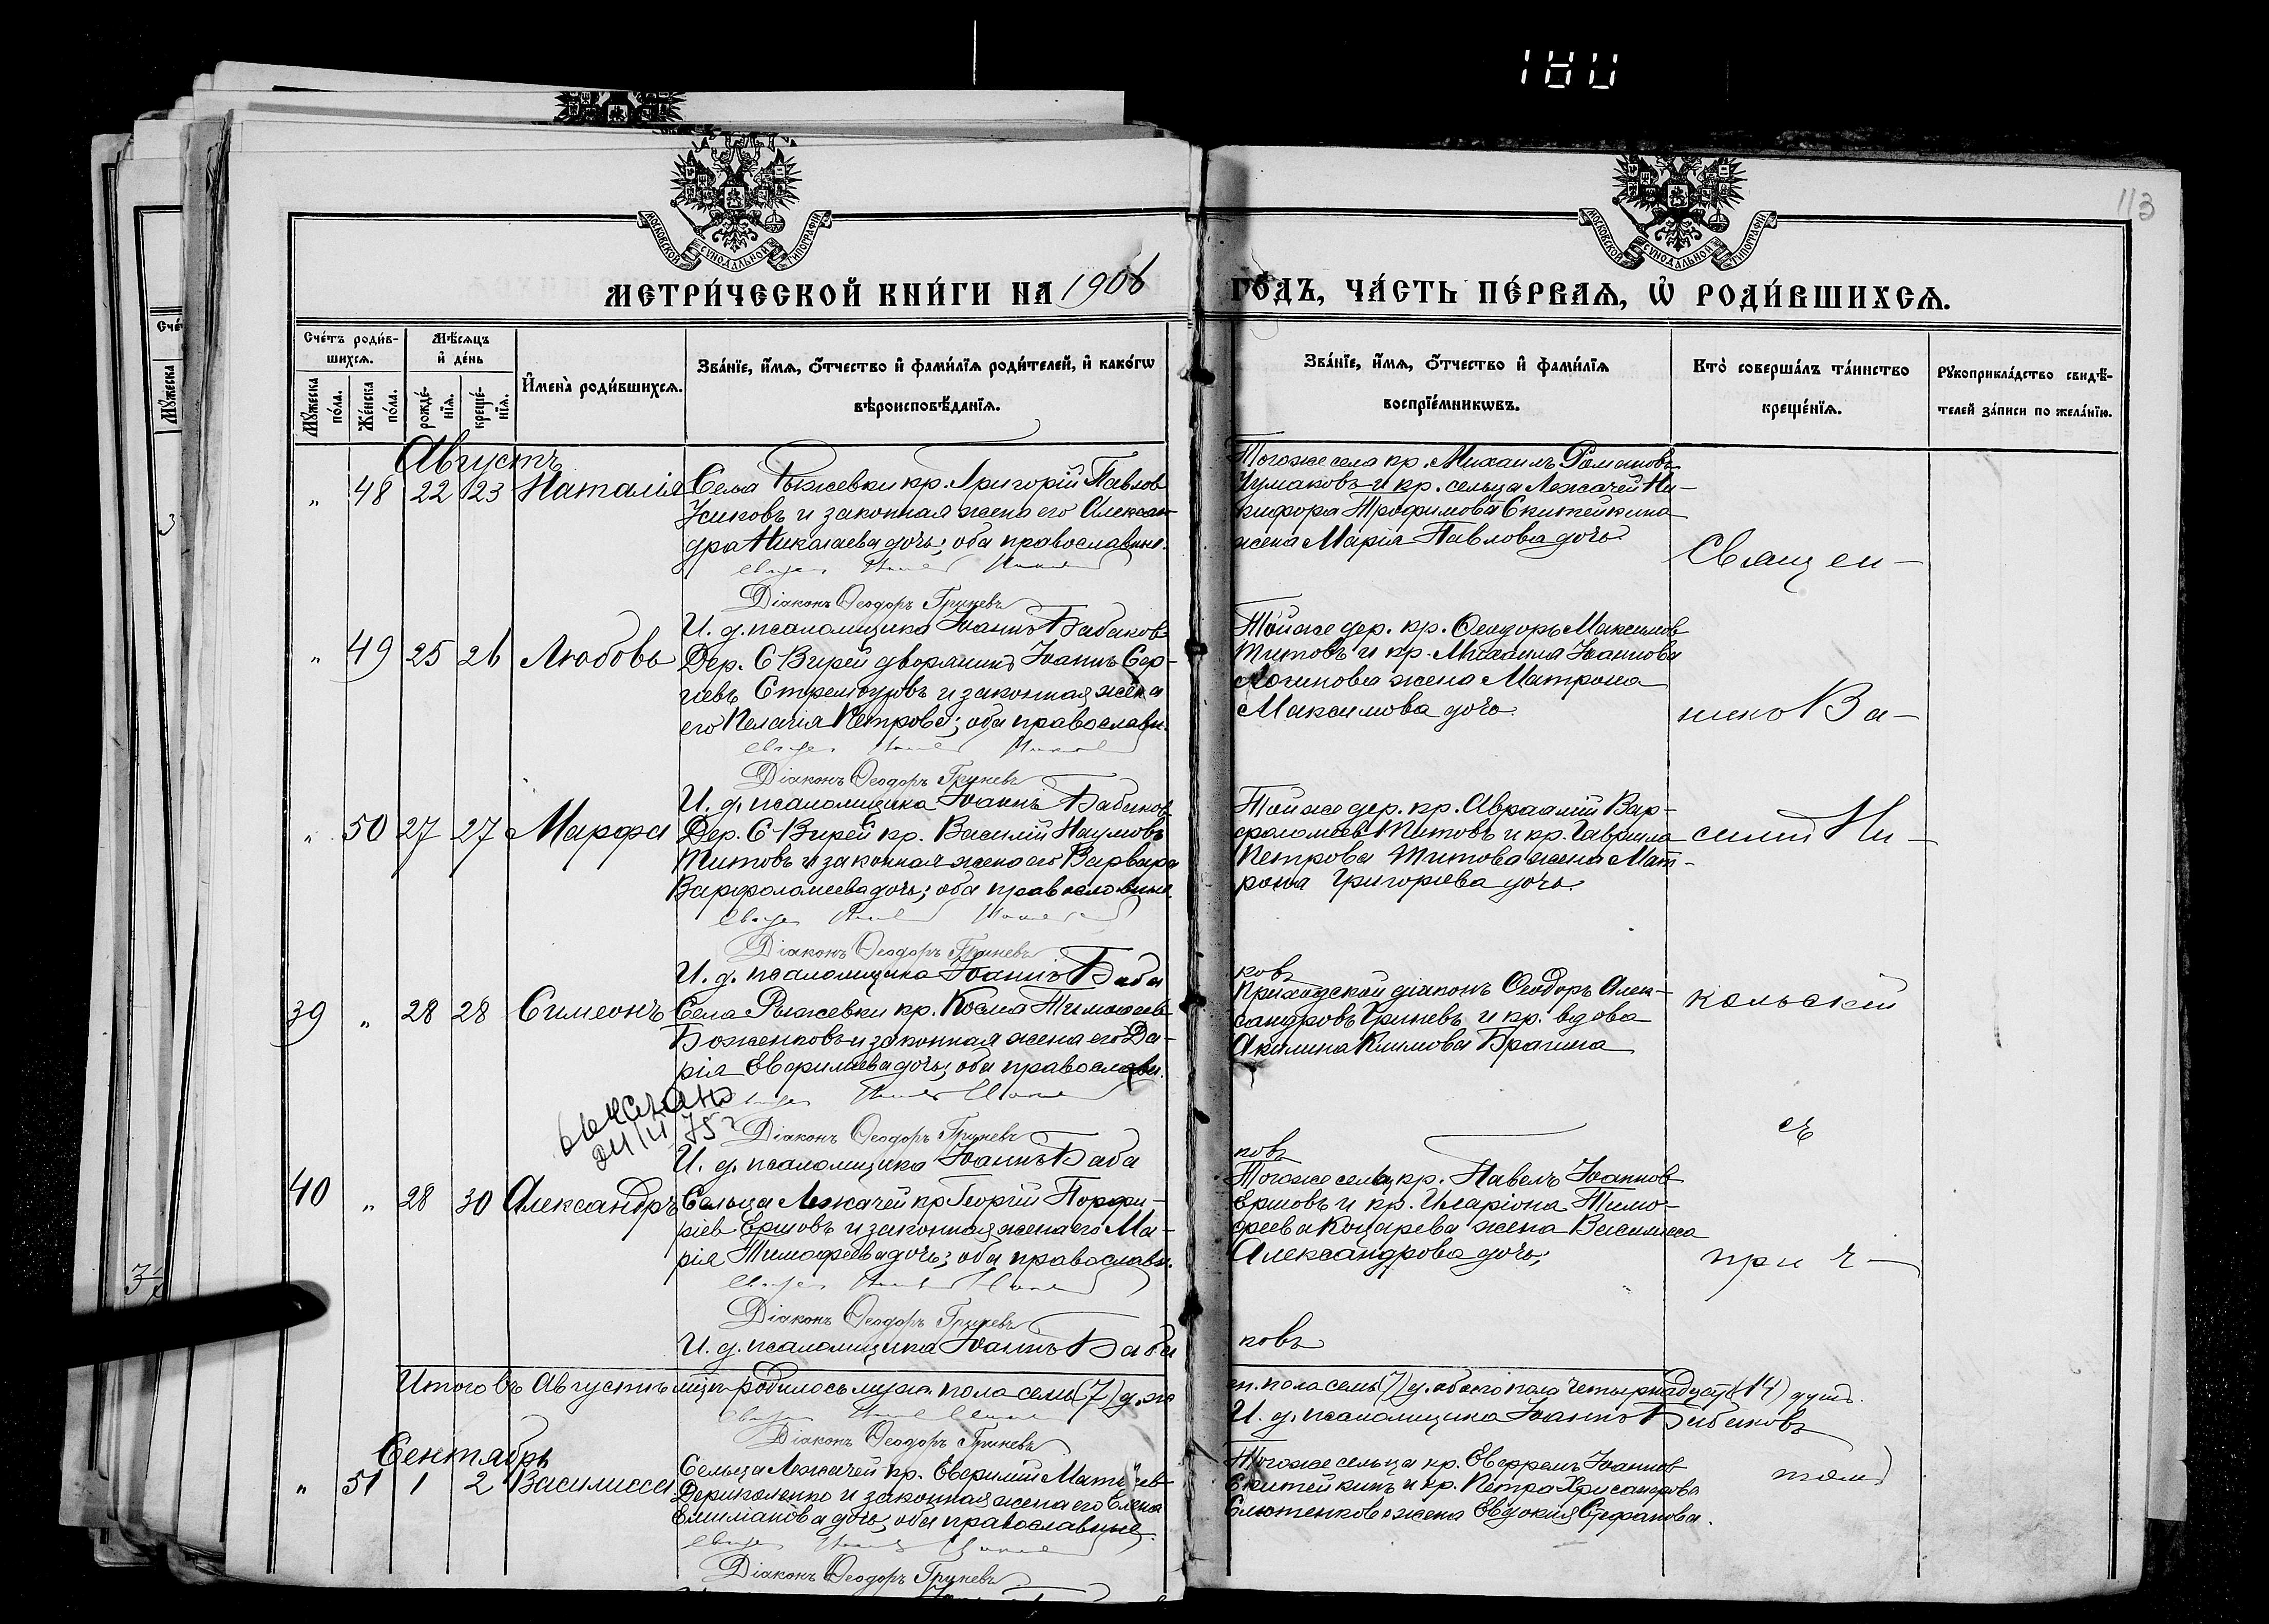 180
113
МОСКОВСКОЙ СѴНОДАЛЬНОЙ ТИПОГРАФІИ
МОСКОВСКОЙ СѴНОДАЛЬНОЙ ТИПОГРАФІИ
МЕТРИ́ЧЕСКОЙ КНИ́ГИ НА 1906 ГО́ДЪ, ЧА́СТЬ ПЕ́РВАѦ, Ѡ҆ РОДИ́ВШИХСѦ.
Сче́тъ роди́в-
шихсѧ.
Мꙋ́жеска по́ла.
Же́нска по́ла.
Мѣ́сѧцъ
и҆ де́нь
рожде́-
нїѧ.
креще́-
нїѧ.
И҆мена̀ роди́вшихсѧ.
Зва́нїе, и҆́мѧ, ѻ҆́тчество и҆ фами́лїѧ роди́телей, и҆ како́гѡ
вѣроисповѣ́данїѧ.
Зва́нїе, и҆́мѧ, ѻ҆́тчество и҆ фами́лїѧ
воспрїе́мникѡвъ.
Кто̀ соверша́лъ та́инство
креще́нїѧ.
Рꙋкоприкла́дство свидѣ́-
телей за́писи по жела́нїю.
Августъ
" 48 22 23 Наталія
Села Рыжевки кр. Григорій Павлов
и законная жена его Алексан-
дра Николаева дочь; оба православные.
Діаконъ Ѳеодоръ Гриневъ
И. д. псаломщика Іоаннъ Бабаковъ
Тогоже села кр. Михаилъ Романовъ
Чумаковъ и кр. сельца Лежачей Ни-
кифора Трофимова Скитейкина
жена Марія Павлова дочь
Священ-
" 49 25 26 Любовь
Дер. С Вирей дворянинъ Іоаннъ Сер-
гіевъ Стремоуховъ и законная жена
его Пелагія Петрова; оба православн.
Діаконъ Ѳеодоръ Гриневъ
И. д. псаломщика Іоаннъ Бабаковъ
Тойже дер. кр. Ѳеодоръ Максимов
Титовъ и кр. Михаила Іоаннова
Логинова жена Матрона
Максимова дочь.
никъ Ва-
" 50 27 27 Марфа
Дер. С Вирей кр. Василій Наумовъ
Титовъ и законная жена его Варвара
Варфоломеева дочь; оба православные.
Діаконъ Ѳеодоръ Гриневъ
И. д. псаломщика Іоаннъ Баба
ковъ
Тойже дер. кр. Авраамій Вар-
фоломеев Титовъ и кр. Гавриила
Петрова Титова жена Мат-
рона Григорьева дочь.
силій Ни-
39 " 28 28 Симеонъ
Села Рыжевки кр. Косма Тимофеев
Боженковъ и законная жена его Да-
рія Евфиміева дочь; оба православн.
Діаконъ Ѳеодоръ Гриневъ
И. д. псаломщика Іоаннъ Баба
ковъ
Приходской діаконъ Ѳеодоръ Алек-
сандровъ Гриневъ и кр. вдова
Акилина Климова Брагина
кольскій
съ
40 " 28 30 Александръ
Сельца Лежачей кр Георгій Порфи-
ріев Ершовъ и законная жена его Ма-
рія Тимофеева дочь; оба православн.
Діаконъ Ѳеодоръ Гриневъ
И. д. псаломщика Іоаннъ Баба
ковъ
Тогоже сельца кр. Павелъ Іоаннов
Ершовъ и кр. Иларіона Тимо-
феева Коцарева жена Василисса
Александрова дочь;
прич-
Итого въ Августѣ мцѣ родилось муж. пола семь (7) д. же
н. пола семь (7) д. обоего пола четырнадцать (14) душъ.
Діаконъ Ѳеодоръ Гриневъ
И. д. псаломщика Іоаннъ Бабаковъ
Сентябрь
" 51 1 2 Василисса
Сельца Лежачей кр. Евфимій Матѳеев
и законная жена его Елена
дочь; оба православные
Діаконъ Ѳеодоръ Гриневъ
Тогоже сельца кр. Евфремъ Іоаннов
Скитейкинъ и кр. Петра Хрисанфова
жена Евдокия Стефанова.
томъ